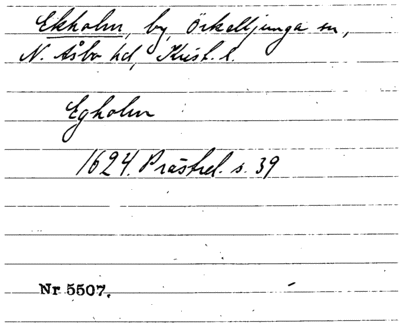 Ekholm, by, Örkelljunga sn,
N. Åsbo hd, Krist. l.
Egholm
1624. Prästrel. s. 39
Nr 5507.